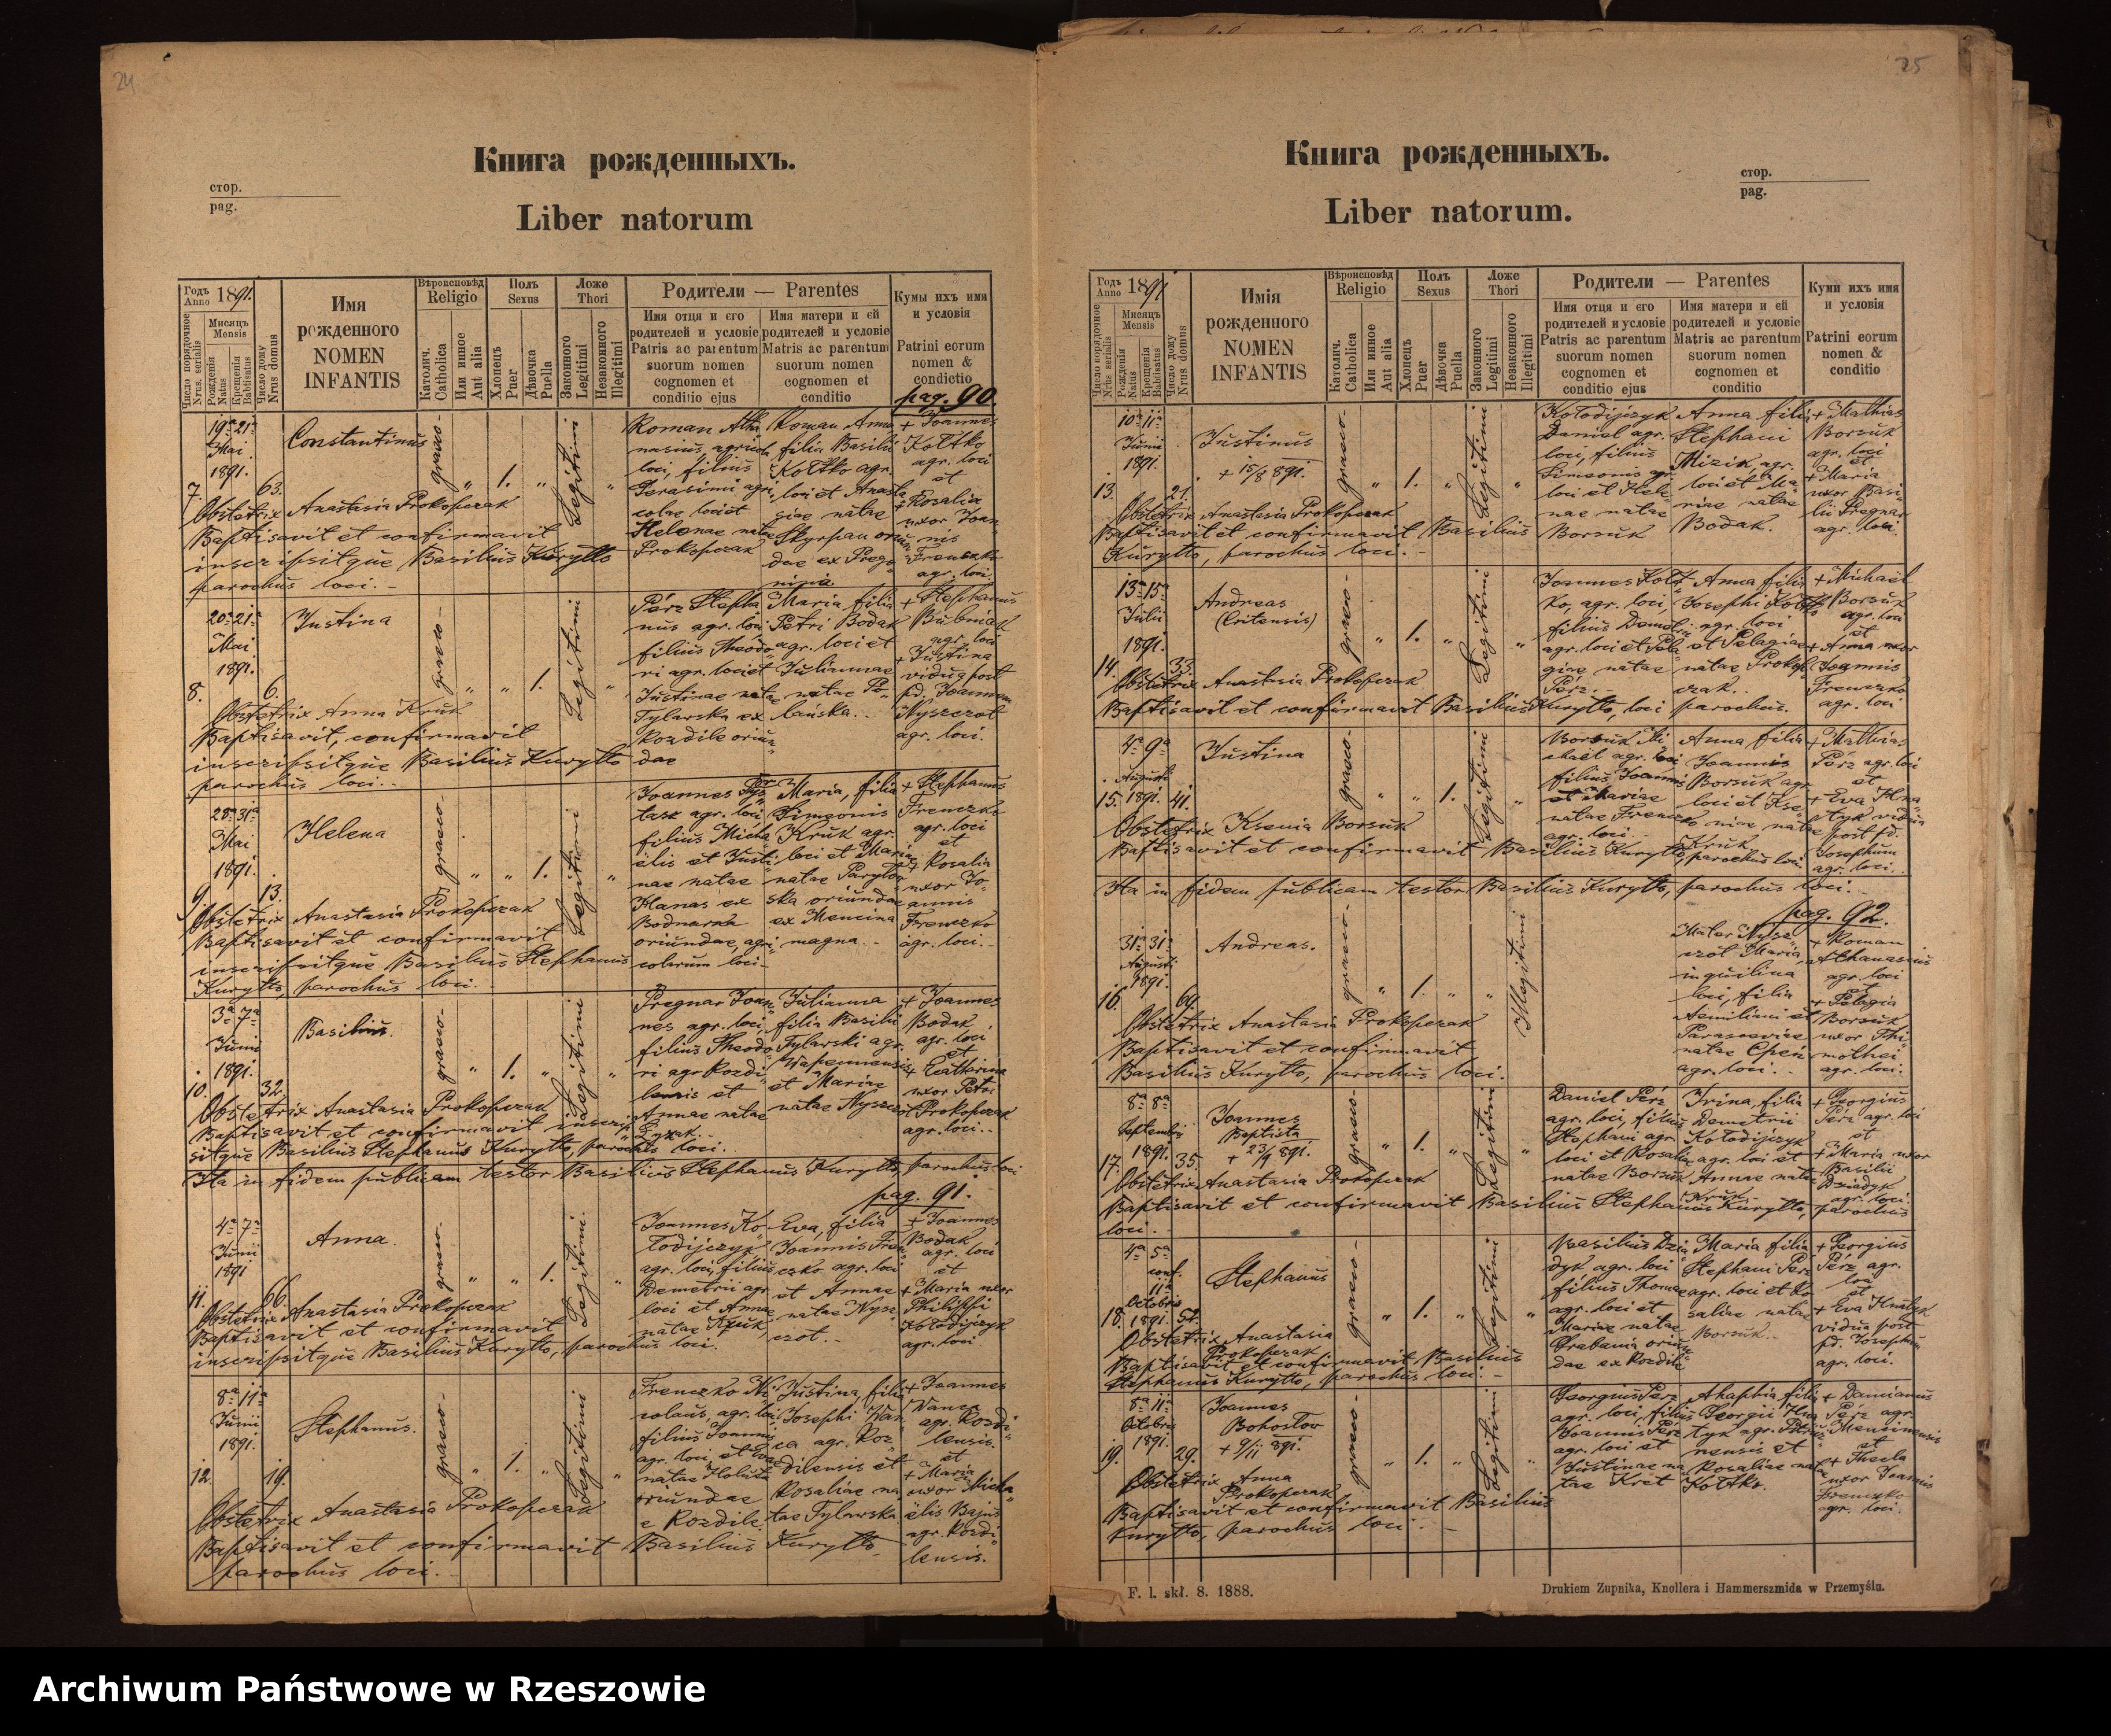 24
Книга рожденныхъ.
стор.
pag.
Liber natorum
Годъ Anno 1891.
Число порядочное Nrus. serialis
Мисяцъ Mensis
Рожденія Natus
Крещенія Babtisatus
Число дому Nrus domus
Имя рожденного NOMEN INFANTIS
Вѣроисповѣд Religio
Католич. Catholica
Или инное Aut alia
Полъ Sexus
Хлопецъ Puer
Дѣвочка Puella
Ложе Thori
Законного Legitimi
Незаконного Illegitimi
Родители — Parentes
Имя отца и его родителей и условіе
Patris ac parentum suorum nomen cognomen et conditio ejus
Имя матери и ей родителей и условіе
Matris ac parentum suorum nomen cognomen et conditio
Кумы ихъ имя и условія
Patrini eorum nomen & condictio
pag. 90.
19a 21a Mai 1891.
7. 63.
Constantinus
graeco-
1.
Legitimi
Roman Atha
nasius agricola
loci, filius
Gerasimi agri
colae loci et
Helenae natae
Prokopczak
Roman Anna
filia Basilii
Kołtko agr.
loci et Anasta
siae natae
+ Joannes
Kołtko
agr. loci
et
+ Rosalia
uxor Joan
nis
Frenczko
agr. loci.
Obstetrix Anastasia Prokopczak
Baptisavit et confirmavit
inscripsitque Basilius Kuryłło
parochus loci.-
20a 21a
Mai
1891.
8. 6.
Justina
graeco-
1.
Legitimi
Pérz Stepha
nus agr. loci
filius Theodo
ri agr. loci et
Justinae natae
Tylawska ex
Rozdile oriun
dae
Maria filia
Petri Bodak
agr. loci et
Juliannae
natae Po
lańska..
+ Stephanus
Bubniak
agr. loci
+ Justina
vidua post
fd. Joannem
Nyszczot
agr. loci.
Obstetrix Anna Kruk
Baptisavit, confirmavit
inscripsitque Basilius Kuryłło
parochus loci..
28a 31a
Mai
1891.
9. 13.
Helena
graeco
1.
Legitimi
filius Micha
ëlis et Justi
nae natae
Hanas ex
Bodnarka
oriundae, agri
colarum loci-
Maria, filia
Simeonis
Kruk agr.
loci et Maria
ska oriundae
ex Mencina
magna..
+ Stephanus
Frenczko
agr. loci
et
+ Rosalia
uxor Jo
annis
Frenczko
agr. loci.-
Obstetrix Anastasia Prokopczak
Baptisavit et confirmavit
inscripsitque Basilius Stephanus
Kuryłło, parochus loci.
3a 7a
Junii
1891.
10. 32.
Basilius.
graeco-
1.
Legitimi
Pregnar Joan
nes agr. loci,
filius Theodo
ri agr Rozdi
lensis et
Annae natae
Julianna
filia Basilii
Tylawski agr.
Wapennensis
et Mariae
natae Nyszczot
+ Joannes
Bodak
agr. loci
et
+ Catharina
uxor Petri
Prokopczak
agr. loci..
Obstetrix Anastasia Prokopczak
Baptisavit et confirmavit inscrip
sitque Basilius Stephanus Kuryłło, parochus loci.
Ita in fidem publicam testor Basilius Stephanus Kuryłło, parochus loci
pag. 91.
4a 7a
Junii
1891
11. 66.
Anna.
graeco-
1.
Legitimi.
Joannes Ko
łodijczyk
agr. loci, filius
Demetrii agr.
loci et Annae
natae Kruk,
Eva, filia
Joannis Fren
czko agr. loci
et Annae
natae Nysz
czot.-
+ Joannes
Bodak
agr. loci
et
+ Maria uxor
Philippi
Kołodijczyk
agr. loci
Obstetrix Anastasia Prokopczak
Baptisavit et confirmavit
inscripsitque Basilius Kuryłło, parochus loci.
8a 11a
Junii
1891.
12. 19.
Stephanus.
graeco-
1.
Legitimi
Frenczko Ni
colaus, agr. loci
filius Joannis
agr. loci, et Evae
oriundae
e Rozdile
Justina, filia
Josephi Wan
ca agr. Roz
dilensis et
Rosaliae na
tae Tylawska
+ Joannes
Wanca
agr. Rozdi
lensis.
et
+ Maria
uxor Micha
ëlis Bajus
agr. Rozdi
lensis.
Obstetrix Anastasia Prokopczak
Baptisavit et confirmavit Basilius Kuryłło,
parochus loci.-
25
Книга рожденныхъ.
стор.
pag.
Liber natorum.
Годъ Anno 1891
Число порядочное Nrus serialis
Мисяцъ Mensis
Рожденія Natus
Крещенія Babtisatus
Число дому Nrus domus
Имія рожденного NOMEN INFANTIS
Вѣроисповѣд Religio
Католич. Catholica
Или инное Aut alia
Полъ Sexus
Хлопецъ Puer
Дѣвочка Puella
Ложе Thori
Законного Legitimi
Незаконного Illegitimi
Родители — Parentes
Имя отца и его родителей и условіе
Patris ac parentum suorum nomen cognomen et conditio ejus
Имя матери и ей родителей и условіе
Matris ac parentum suorum nomen cognomen et conditio
Куми ихъ имя и условія
Patrini eorum nomen & conditio
10a 11a
Junii
1891.
13. 21.
Justinus
+ 15/8 891.
graeco-
1.
Legitimi
Kołodijczyk
Daniel agr.
loci, filius
Simeonis agr.
loci et Hele
nae natae
Borsuk
Anna filia
Stephani
Mizik, agr.
loci et Ma
riae natae
Bodak.
+ Mathias
Borsuk
agr. loci
et
+ Maria
uxor Basi
lii Pregnar
agr. loci
Obstetrix Anastasia Prokopczak
Baptisavit et confirmavit Basilius
Kuryłło, parochus loci.-
13a 15a
Julii
1891.
14. 33.
Andreas
(Critensis)
graeco-
1.
Legitimi
Joannes Kołt
ko, agr. loci,
filius Demetrii
agr. loci et Pela
giae natae
Pérz..
Anna filia
Josephi Kołtko
agr. loci
et Pelagiae
natae Prokop
czak..
+ Michaël
Borsuk
agr. loci
et
+ Anna uxor
Joannis
Frenczko
agr. loci
Obstetrix Anastasia Prokopczak
Baptisavit et confirmavit Basilius Kuryłło, loci parochus.
4a 9a
Augusti
15. 1891. 41.
Justina
graeco-
1.
Legitimi
Borsuk Mi
chaël agr. loci
filius Joannis
et Mariae
natae Frenczko
agr. loci..
Anna filia
Joannis
Borsuk agr.
loci et Kse
niae natae
Kruk
+ Mathias
Pérz agr. loci
et
+ Eva Hna
tyk vidua
post fd.
Josephum
agr. loci.
Obstetrix Ksenia Borsuk
Baptisavit et confirmavit Basilius Kuryłło, parochus loci
Ita in fidem publicam testor Basilius Kuryłło, parochus loci.
pag. 92.
31a 31a
Augusti
1891.
16. 69.
Andreas.
graeco-
1.
Illegitimi
Mater Nysz
czot Maria
inquilina
loci, filia
Aemiliani et
Parasceviae
natae Cpeń
agr. loci..
+ Roman
Athanasius
agr. loci
et
+ Pelagia
Borsuk
uxor Thi
mothei
agr. loci.
Obstetrix Anastasia Prokopczak
Baptisavit et confirmavit
Basilius Kuryłło, parochus loci.
8a 8a
Septembris
1891.
17. 35.
Joannes
Baptista
+ 23/9 891.
graeco-
1.
Legitimi
Daniel Pérz
agr. loci, filius
Stephani agr.
loci et Rosaliae
natae Borsuk
Irina, filia
Demetrii
Kołodijczyk
agr. loci et
Annae natae
Kruk.
+ Georgius
Pérz agr. loci
et
+ Maria uxor
Basilii
Dziadyk
agr. loci.
Obstetrix Anastasia Prokopczak
Baptisavit et confirmavit Basilius Stephanus Kuryłło, parochus
loci.-
4a 5a
conf.
11a
Octobris
18. 1891. 52.
Stephanus
graeco-
1.
Legitimi
Basilius Dzia
dyk agr. loci
filius Thomae
agr. loci et
Mariae natae
Hrabania oriun
dae ex Rozdile
Maria filia
Stephani Pérz
agr. loci et Ro
saliae natae
Borsuk..
+ Georgius
Pérz agr.
loci
et
+ Eva Hnatyk
vidua post
fd. Josephum
agr. loci.
Obstetrix Anastasia
Prokopczak
Baptisavit et confirmavit Basilius
Stephanus Kuryłło, parochus loci.-
8a 11a
Octobris
1891.
19. 29.
Joannes
Bohosłow
+ 9/11 891.
graeco-
1.
Legitimi
Georgius Pérz
agr. loci, filius
Joannis Pérz
agr. loci et
Justinae na
tae Kret
Ahaphia filia
Georgii Hna
tyk agr. Petri
nensis et
Rosaliae natae
Kołtko.
+ Damianus
Pérz agr.
Mencinensis
et
+ Thecla
uxor Joannis
Frenczko
agr. loci.
Obstetrix Anna
Prokopczak
Baptisavit et confirmavit Basilius
Kuryłło, parochus loci.-
F. l. skł. 8. 1888.
Drukiem Zupnika, Knollera i Hammerszmida w Przemyślu.
Archiwum Państwowe w Rzeszowie